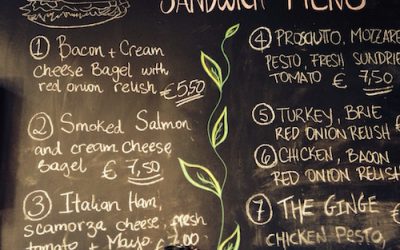 SANDWICH MENU
① Bacon + Cream
cheese Bagel with
red onion relish €5,50
② Smoked Salmon
and cream cheese
Bagel € 7,50
③ Italian Ham,
scamorza cheese, fresh
tomato + Mayo
④ PROSCIUTTO, MOZZARE
PESTO, FRESH SUNDRIE
TOMATO € 7,50
⑤ TURKEY, BRIE
RED ONION RELISH €
⑥ CHICKEN, BACON
RED ONION RELISH
⑦ THE GINGE
CHICKEN PESTO,